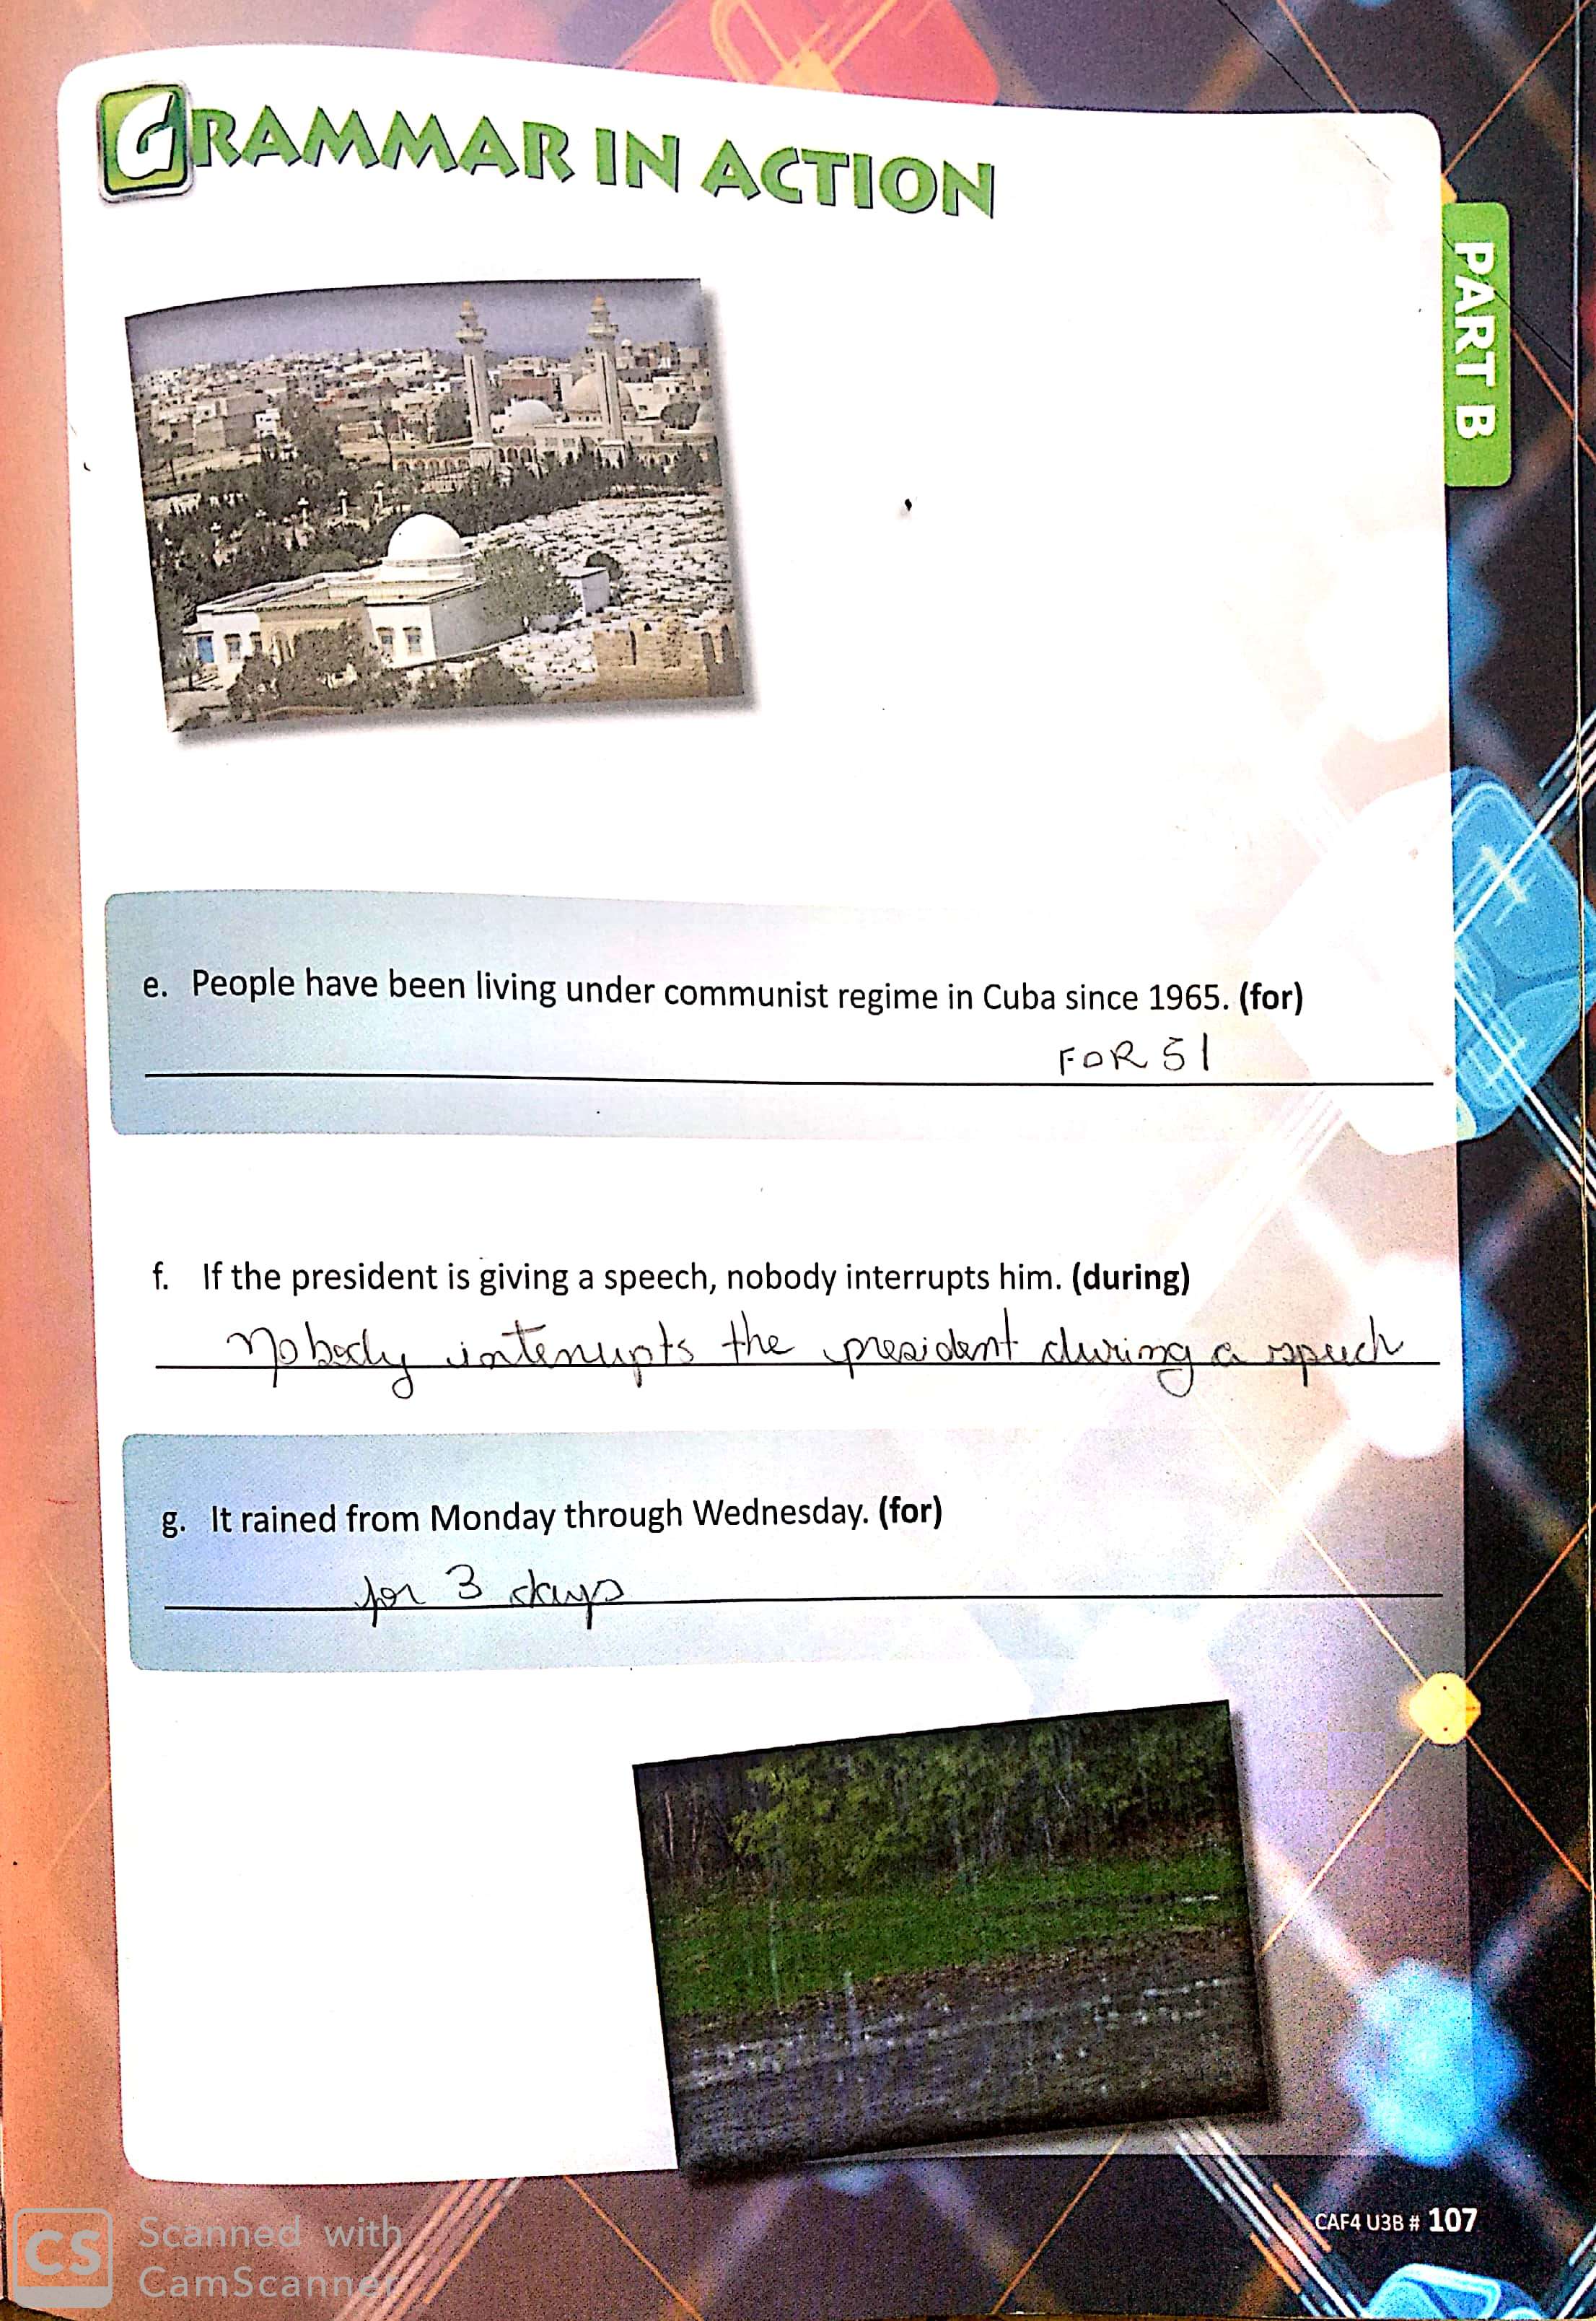 GRAMMAR IN ACTION
PART B
e. People have been living under communist regime in Cuba since 1965. (for)
FOR 51
f. If the president is giving a speech, nobody interrupts him. (during)
Nobody interrupts the president during a speech
g. It rained from Monday through Wednesday. (for)
for 3 days
CAF4 U3B # 107
CS Scanned with
CamScanner